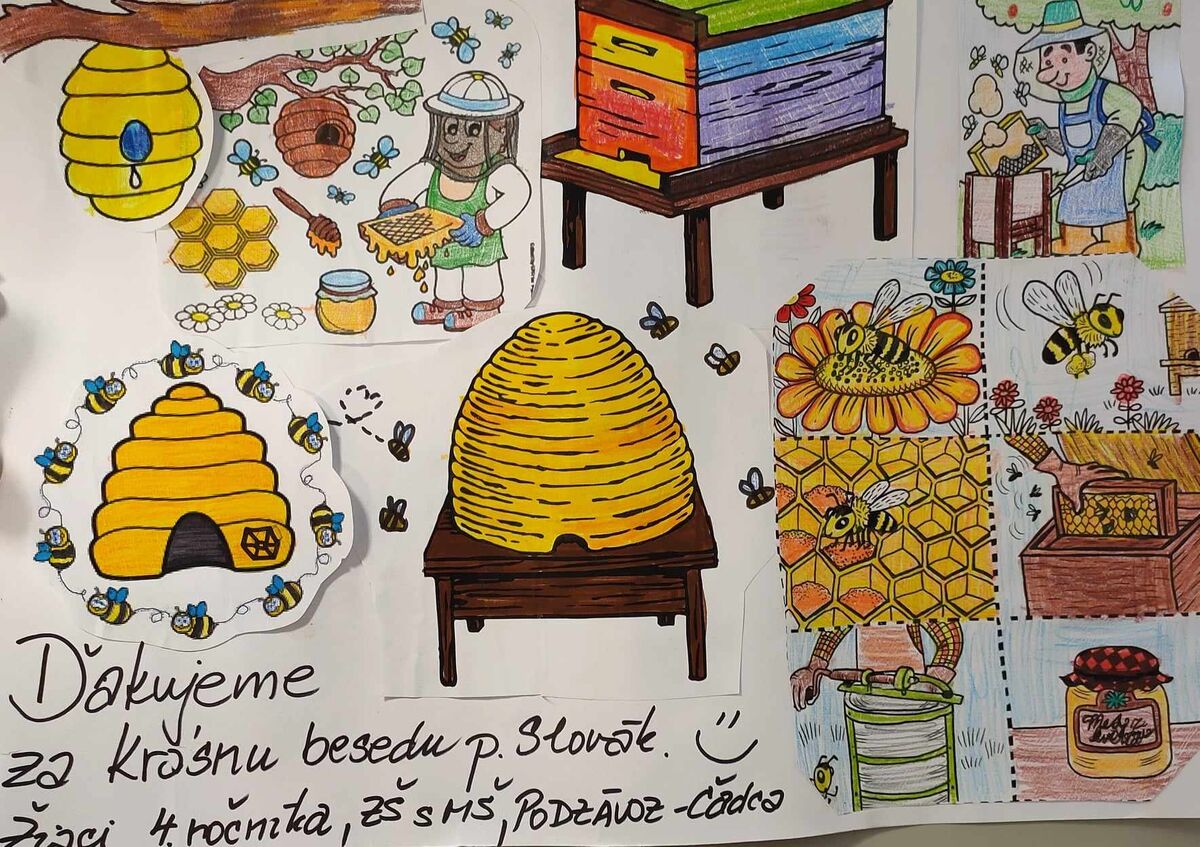 Ďakujeme
za krásnu besedu p. Slovák.
Žiaci 4. ročníka, ZŠ s MŠ, PODZÁVOZ - Čadca
Med z